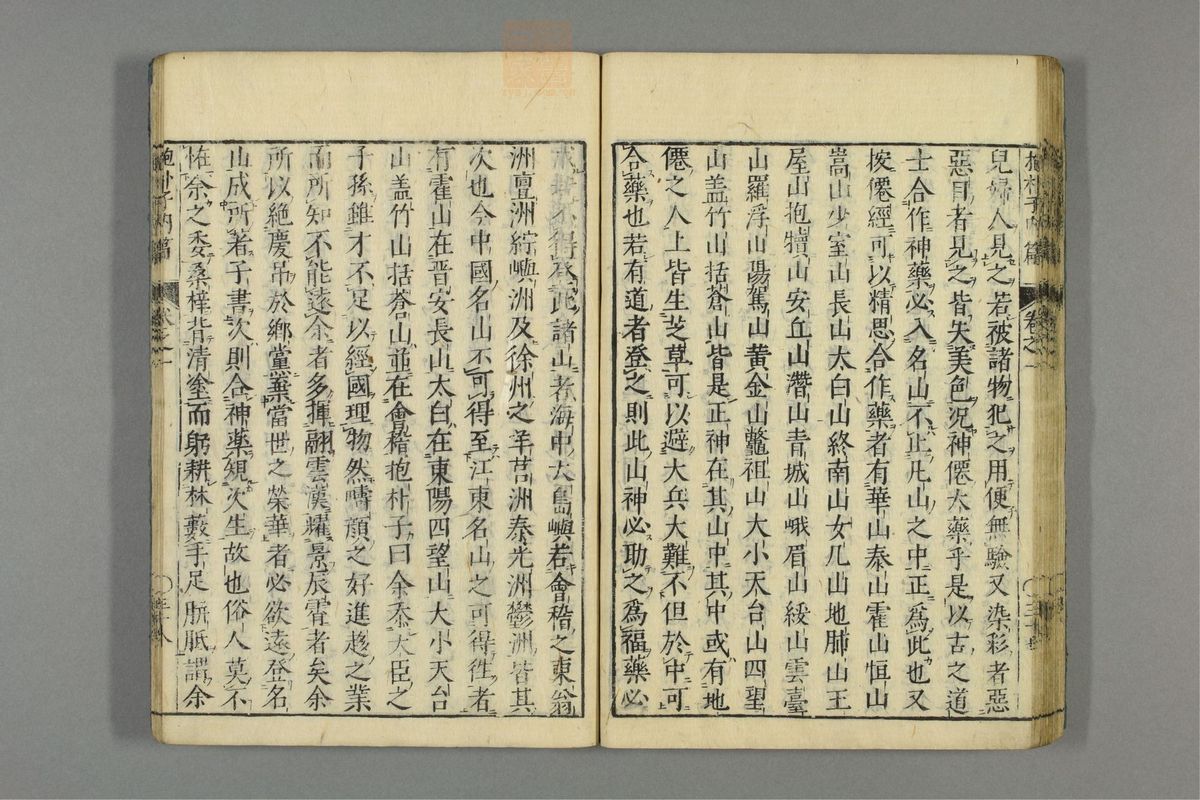 兒婦人見之若被諸物犯之用便無驗又染彩者惡
惡目者見之皆失美色况神僊大藥乎是以古之道
士合作神藥必入名山不止凡山之中正為此也又
按僊經可以精思合作藥者有華山泰山霍山恒山
嵩山少室山長山太白山終南山女几山地肺山王
屋山抱犢山安丘山潛山青城山峨眉山綏山雲臺
山羅浮山陽駕山黄金山鼈祖山大小天台山四望
山盖竹山括蒼山皆是正神在其山中其中或有地
僊之人上皆生芝草可以避大兵大難不但於中可
合藥也若有道者登之則此山神必助之為福藥必
成若不得登此諸山者海中大島嶼若會稽之東翁
洲亶洲紵嶼洲及徐州之羊莒洲泰光洲鬱洲皆其
次也今中國名山不可得至江東名山之可得徃者
有霍山在晋安長山太白在東陽四望山大小天台
山盖竹山括蒼山並在會稽抱朴子曰余忝大臣之
子孫雖才不足以經國理物然疇類之好進趍之業
而所知不能遠余者多揮翮雲漢耀景辰霄者矣余
所以絶慶吊於鄉黨棄當世之榮華者必欲遠登名
山成所著子書次則合神藥規次生故也俗人莫不
恠余之委桑梓背清塗而躬耕林藪手足胼胝謂余
抱朴子内篇
卷之一